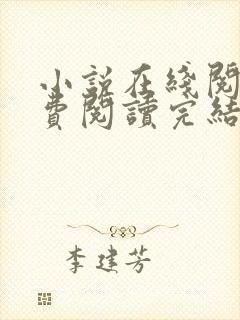 小說在綫閱
費閱讀完結
李建芳